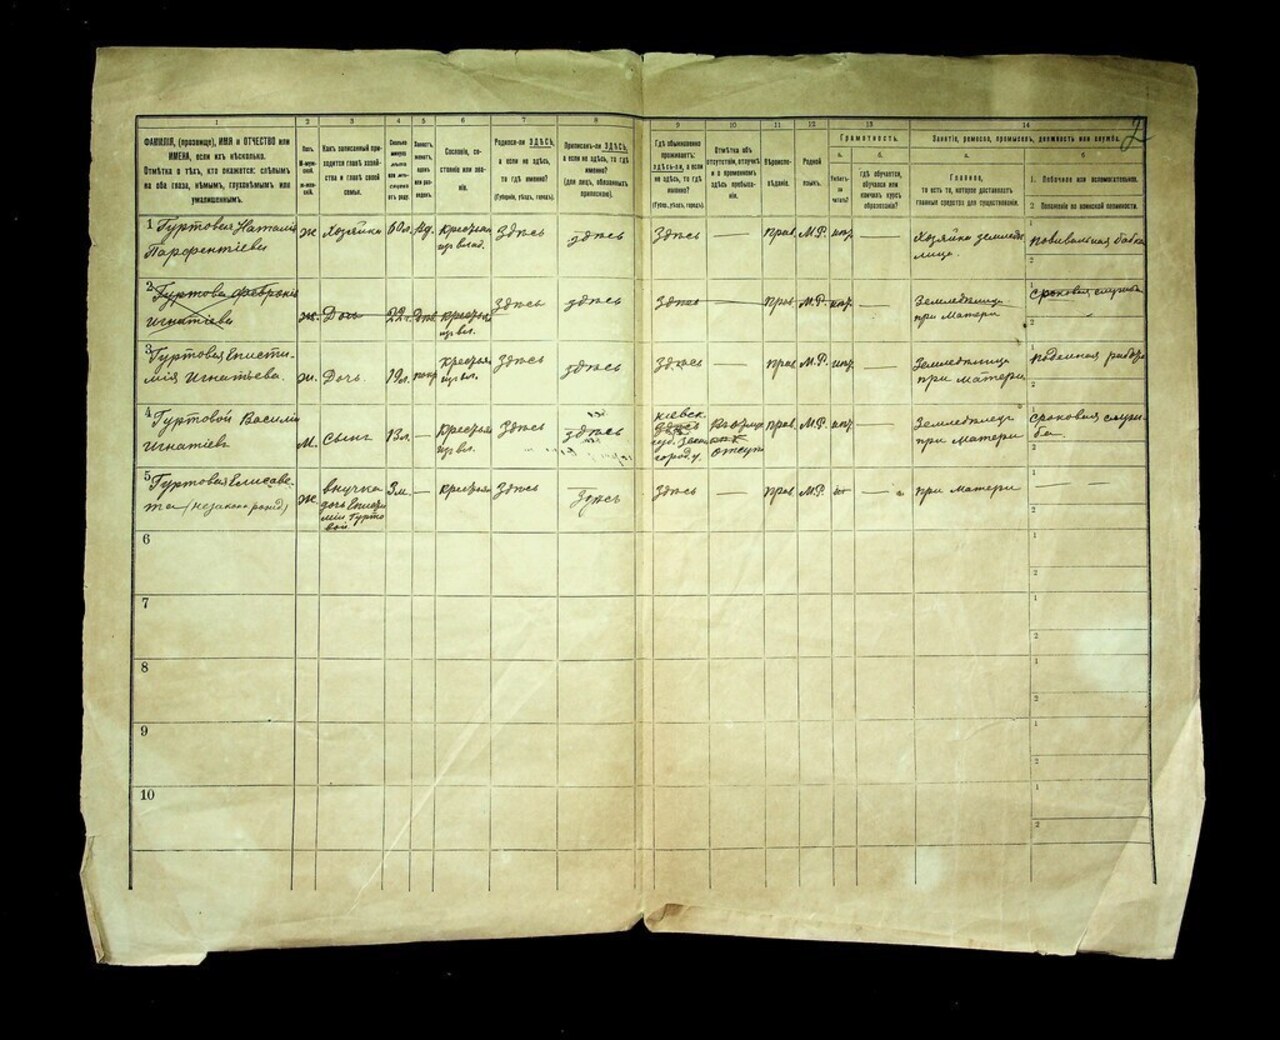 2
1 2 3 4 5 6 7 8 9 10 11 12 13 14
ФАМИЛІЯ, (прозвище), ИМЯ и ОТЧЕСТВО или
ИМЕНА, если ихъ нѣсколько.
Отмѣтка о тѣхъ, кто окажется: слѣпымъ
на оба глаза, нѣмымъ, глухонѣмымъ или
умалишеннымъ.
Полъ.
Какъ записанный при-
ходится главѣ хозяй-
ства и главѣ своей
семьи.
Сословіе, со-
стояніе или зва-
ніе.
Родился-ли ЗДѢСЬ,
а если не здѣсь,
то гдѣ именно?
(Губернія, уѣздъ, городъ).
Приписанъ-ли ЗДѢСЬ,
а если не здѣсь, то гдѣ
именно?
(для лицъ, обязанныхъ
припискою).
Гдѣ обыкновенно
проживаетъ:
здѣсь-ли, а если
не здѣсь, то гдѣ
именно?
(Губер., уѣздъ, городъ).
Отмѣтка объ
отсутствіи, отлучкѣ
и о временномъ
здѣсь пребыва-
ніи.
Вѣроиспо-
вѣданіе.
Родной
языкъ.
Грамотность.
а.
Умѣетъ-
ли
читать?
б.
гдѣ обучается,
обучался или
кончилъ курсъ
образованія?
Занятіе, ремесло, промыселъ, должность или служба.
а.
Главное,
то есть то, которое доставляетъ
главныя средства для существованія.
б
1. Побочное или вспомогательное.
2 Положеніе по воинской повинности.
1 Гуртовая Наталія
Парфентіева
ж Хозяйка 60 л. вд. крестьян
из влад.
Здѣсь здѣсь Здѣсь — прав. М.Р. нѣт — Хозяйка земледѣ
лица.
1 повивальная бабка
2
2 Гуртова Февронія
Игнатіева
ж. Дочь 22 л. крестьян
из вл.
Здѣсь здѣсь Здѣсь — прав. М.Р. нѣт — Земледѣлица
при матери
1 сроковая служба
2
3 Гуртовая Еписти-
мія Игнатьева.
ж. Дочь. 19 л. крестьян
из вл.
Здѣсь здѣсь здѣсь — прав М.Р. нѣт — Земледѣлица
при матери
1 поденная работа
2
4 Гуртовой Василій
Игнатіевъ
м. Сынъ 13 л. — крестьян
из вл.
Здѣсь здѣсь
кіевск.
здѣсь
городу.
отсут
прав. М.Р. нѣт — Земледѣлецъ
при матери
1 сроковая служ-
ба.
2
5 Гуртовая Елисаве-
та (незаконорожд)
ж внучка
дочь Еписти
міи Гурто
вой
3 м. — крестьян Здѣсь Здѣсь Здѣсь — прав М.Р. — при матери
1 — —
2
6
1
2
7
1
2
8
1
2
9
1
2
10
1
2